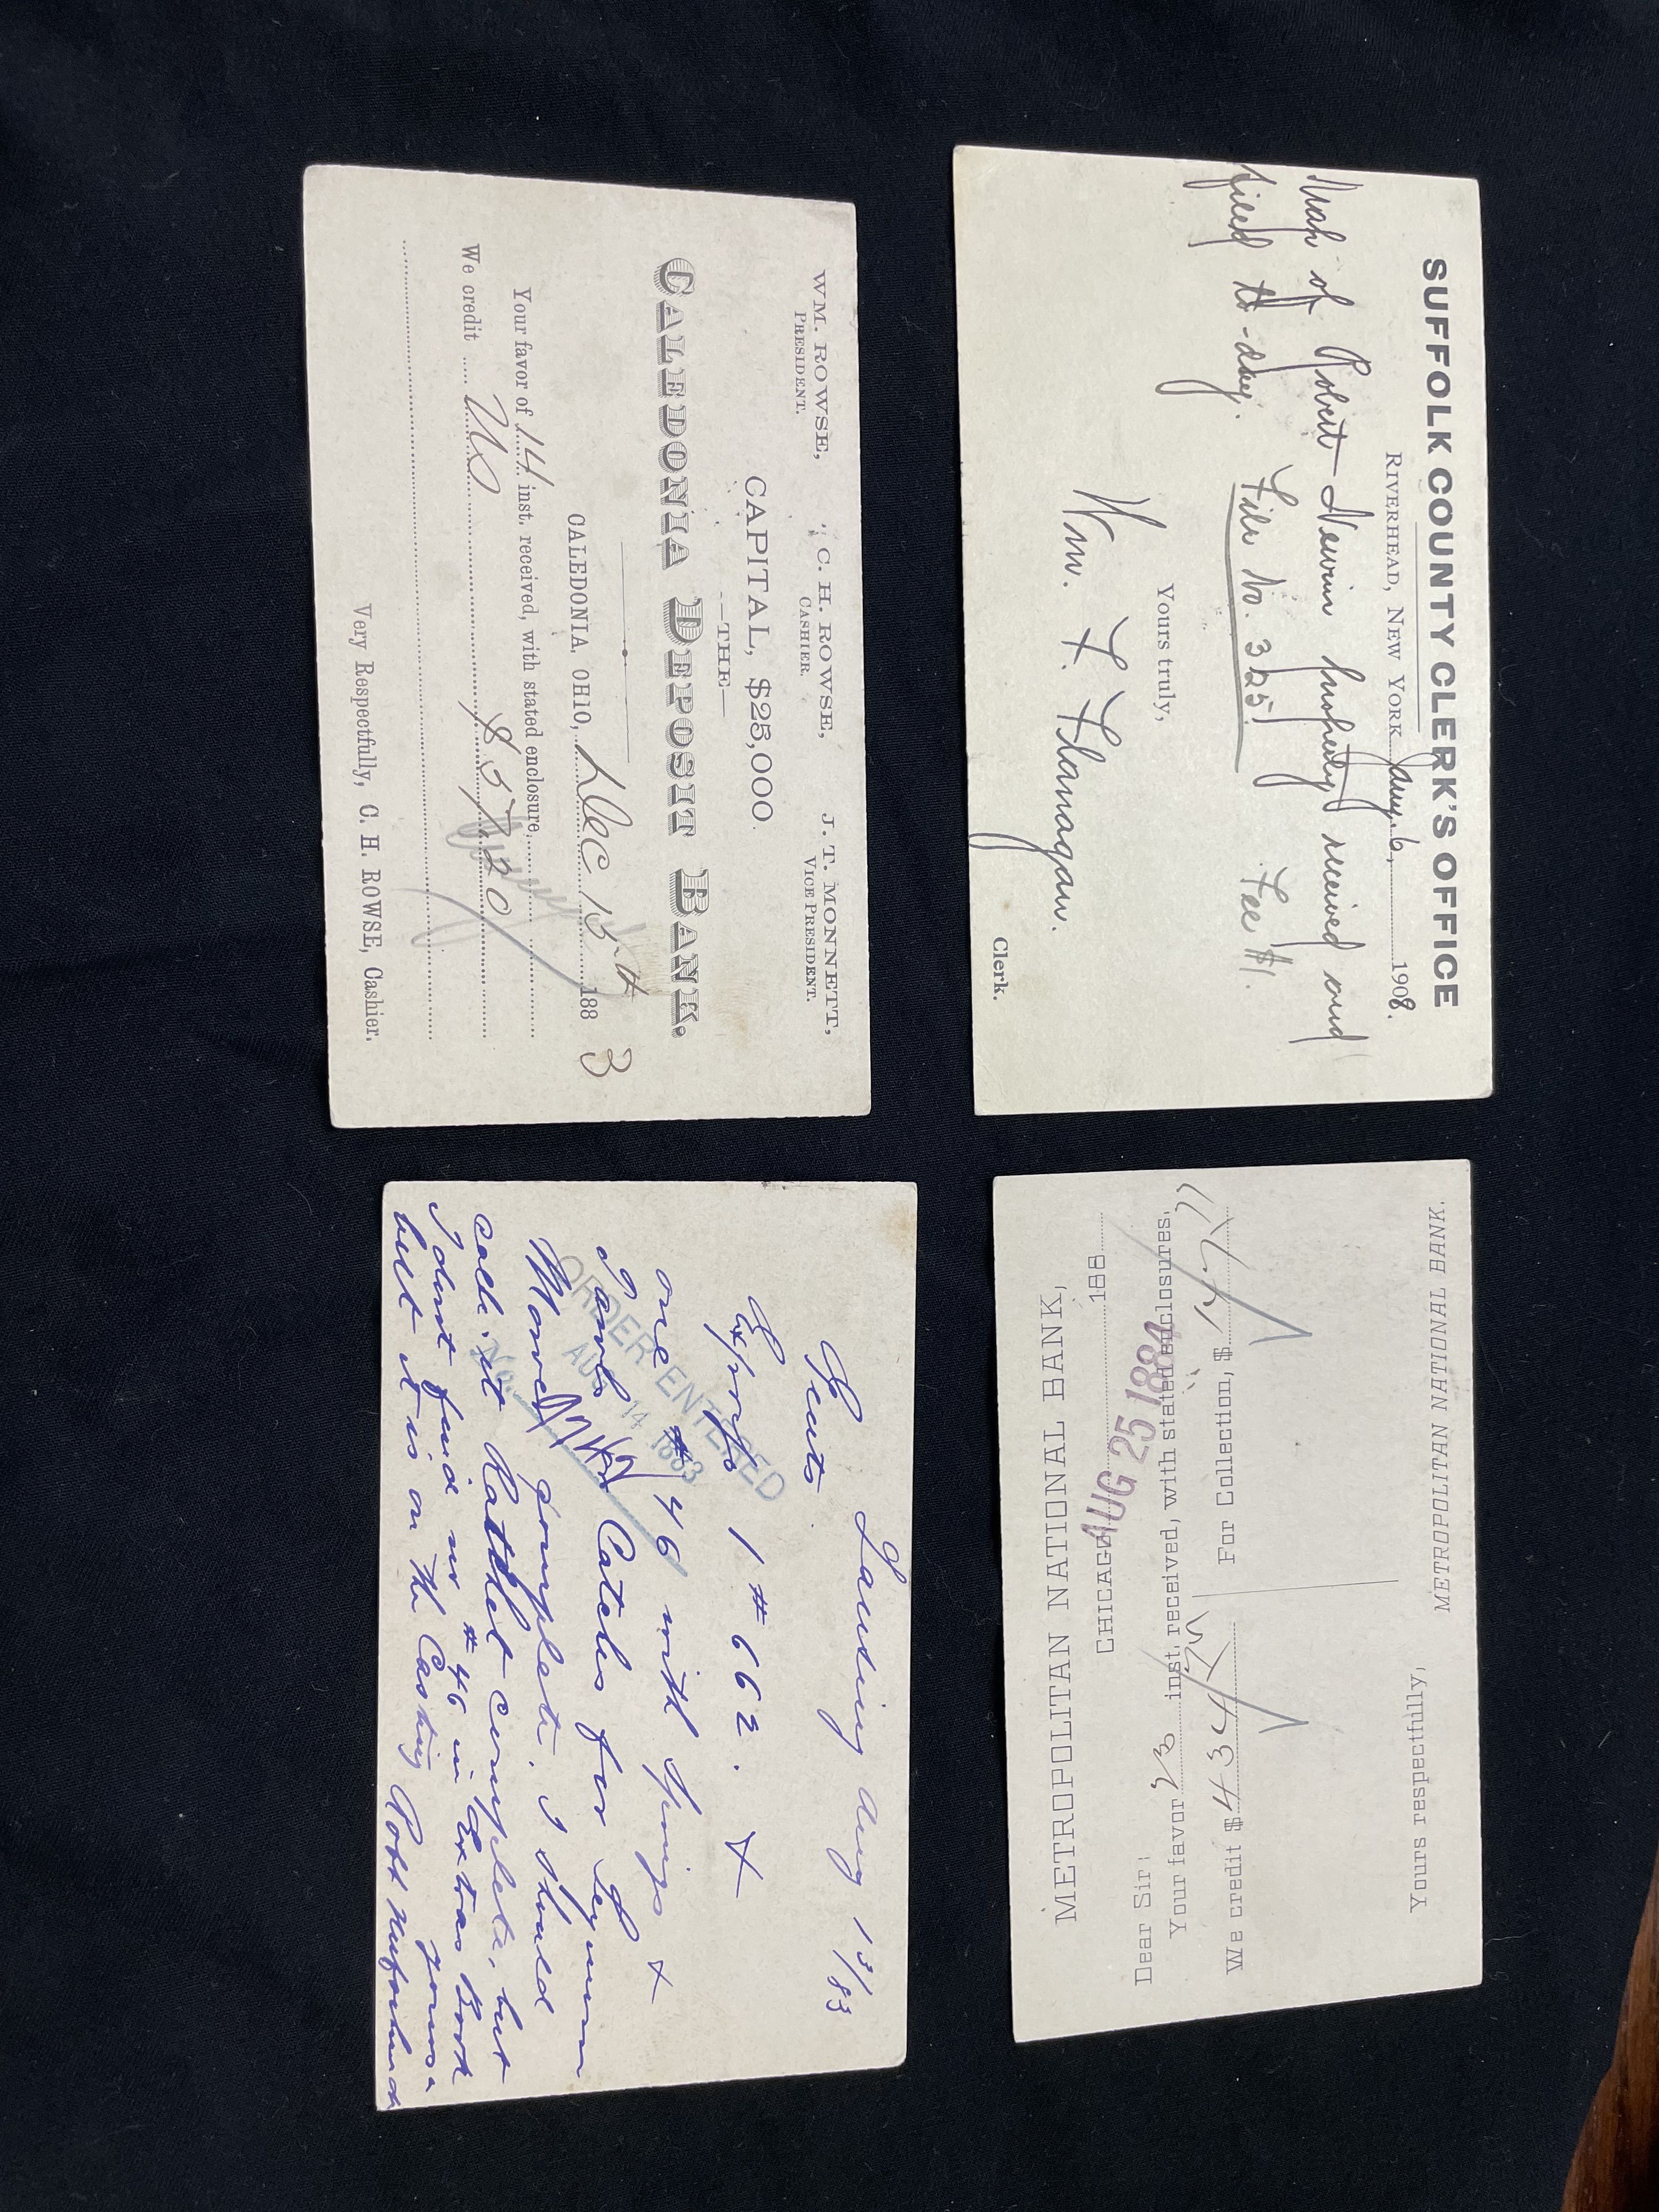 SUFFOLK COUNTY CLERK'S OFFICE
RIVERHEAD, NEW YORK Jany. 6, 1908.
Map of Robert Nevin property received and
filed to-day. File No. 325. Fee $1.
Yours truly,
Wm. F. Flanagan.
Clerk.
WM. ROWSE, C. H. ROWSE, J. T. MONNETT,
PRESIDENT. CASHIER. VICE PRESIDENT.
CAPITAL, $25,000.
—THE—
CALEDONIA DEPOSIT BANK.
CALEDONIA, OHIO, Dec 15th 1883
Your favor of 14 inst. received, with stated enclosure,
We credit us $ 57.20
Very Respectfully, C. H. ROWSE, Cashier.
METROPOLITAN NATIONAL BANK,
CHICAGO 188
AUG 25 1884
Dear Sir:
Your favor 23 inst. received, with stated enclosures,
We credit $ 434 For Collection, $
Yours respectfully,
METROPOLITAN NATIONAL BANK.
Lansing Aug 13/83
Gents
Ex/prss 1 # 662. X
one # 46 with Springs X
and Catch for Seymour
Mower complete. I should
call it Rathet complete, but
I dont find no # 46 in Extras Book
but it is on the Casting
yours
ORDER ENTERED
AUG 14 1883
No.